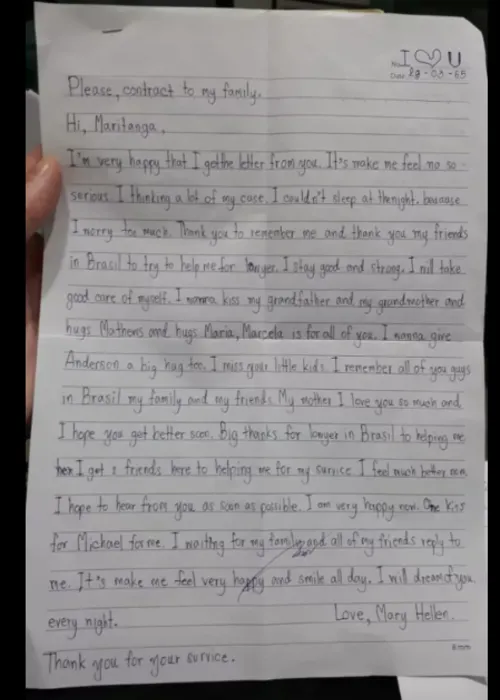 No. I ♡ U
Date 29-03-65
Please, contract to my family.
Hi, Maritanga.
I'm very happy that I get the letter from you. It's make me feel no so
serious. I thinking a lot of my case. I couldn't sleep at the night. beacase
I worry too much. Thank you to remember me and thank you my friends
in Brasil to try to help me for lonyer. I stay good and strong. I will take
good care of myself. I wanna kiss my grandfather and my grandmother and
hugs Matheus and hugs Maria, Marcela is for all of you. I wanna give
Anderson a big hug too. I miss your little kids. I remember all of you guys
in Brasil my family and my friends. My mother I love you so much and
I hope you get better soon. Big thanks for lonyer in Brasil to helping me
I got 2 friends here to helping me for my survice I feel much better now.
I hope to hear from you as soon as possible. I am very happy now. One kiss
for Michael for me. I waiting for my family and all of my friends reply to
me. It's make me feel very happy and smile all day. I will dream of you
every night. Love, Mary Hellen.
Thank you for your survice.